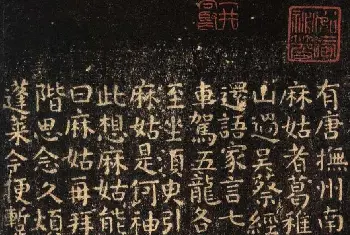 有唐撫州南
麻姑者葛稚
山過吳蔡經
還語家言七
車駕五龍各
至坐須臾引
麻姑是何神
此想麻姑能
曰麻姑再拜
階思念久煩
蓬萊今便暫